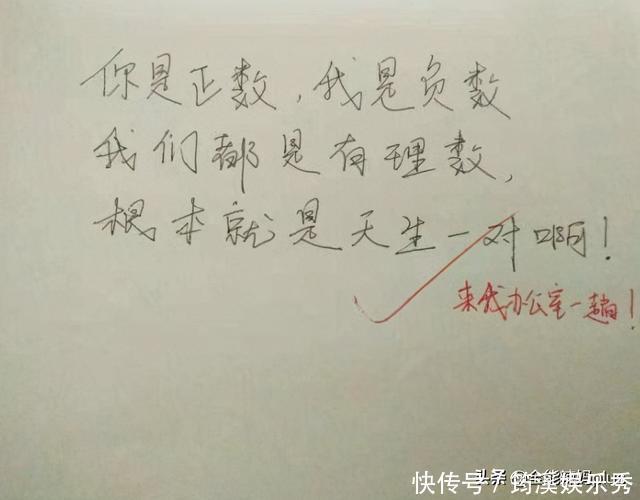 你是正数，我是负数
我们都是有理数，
根本就是天生一对啊！
来我办公室一趟！
快传号／筠溪娱乐秀